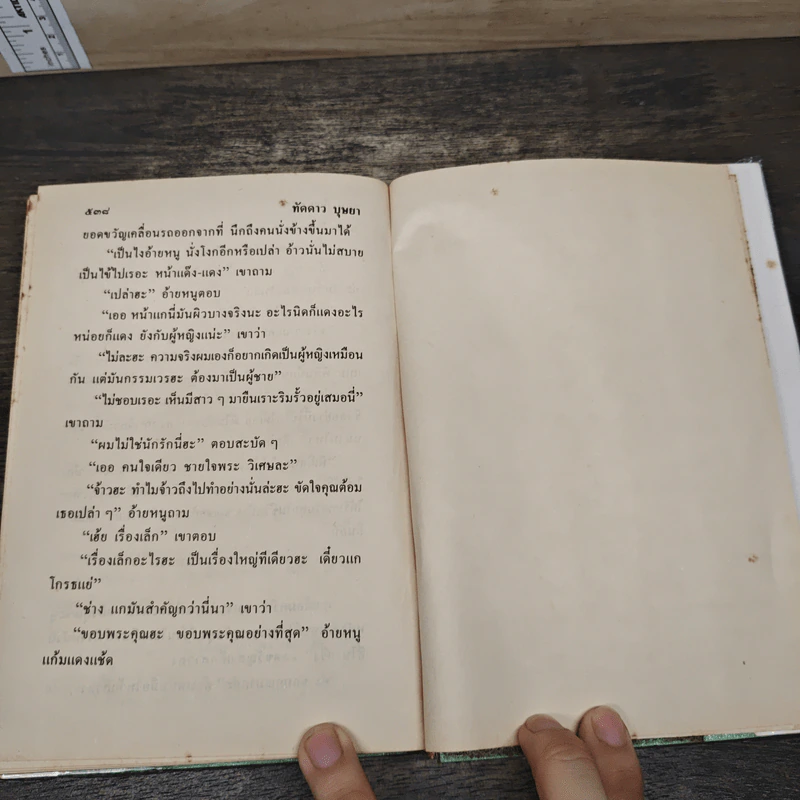 ๕๓๘ ทัดดาว บุษยา
ยอดขวัญเคลื่อนรถออกจากที่ นึกถึงคนนั่งข้างขึ้นมาได้
“เป็นไงอ้ายหนู นั่งโงกอีกหรือเปล่า อ้าวนั่นไม่สบาย
เป็นไข้ไปเรอะ หน้าแด๊ง-แดง” เขาถาม
“เปล่าฮะ” อ้ายหนูตอบ
“เออ หน้าแกนี่มันผิวบางจริงนะ อะไรนิดก็แดงอะไร
หน่อยก็แดง ยังกับผู้หญิงแน่ะ” เขาว่า
“ไม่ละฮะ ความจริงผมเองก็อยากเกิดเป็นผู้หญิงเหมือน
กัน แต่มันกรรมเวรฮะ ต้องมาเป็นผู้ชาย”
“ไม่ชอบเรอะ เห็นมีสาว ๆ มายืนเราะริมรั้วอยู่เสมอนี่”
เขาถาม
“ผมไม่ใช่นักรักนี่ฮะ” ตอบสะบัด ๆ
“เออ คนใจเดียว ชายใจพระ วิเศษละ”
“จ้าวฮะ ทำไมจ้าวถึงไปทำอย่างนั้นล่ะฮะ ขัดใจคุณต้อม
เธอเปล่า ๆ” อ้ายหนูถาม
“เฮ้ย เรื่องเล็ก” เขาตอบ
“เรื่องเล็กอะไรฮะ เป็นเรื่องใหญ่ทีเดียวฮะ เดี๋ยวแก
โกรธแย่”
“ช่าง แกมันสำคัญกว่านี่นา” เขาว่า
“ขอบพระคุณฮะ ขอบพระคุณอย่างที่สุด” อ้ายหนู
แก้มแดงแช้ด